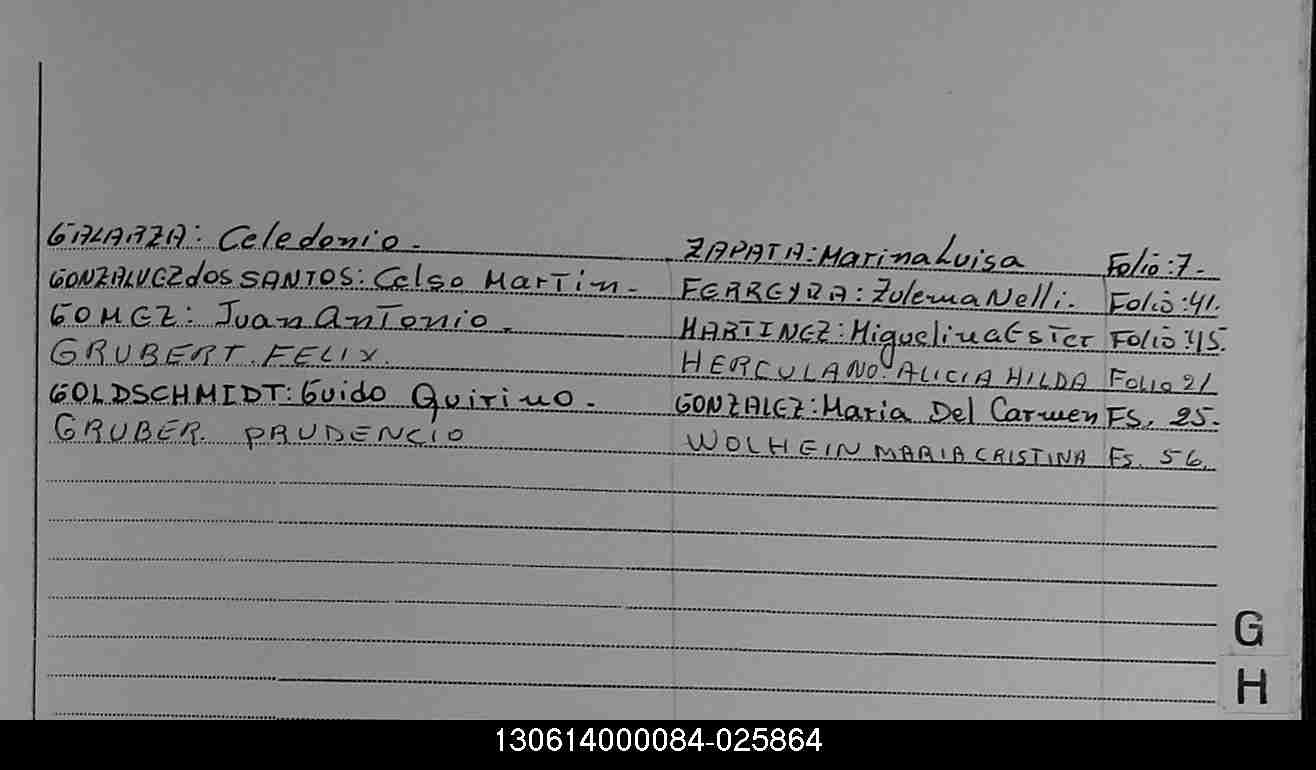 GALARZA: Celedonio. ZAPATA: Marina Luisa Folio: 7.
GONZALVEZ dos SANTOS: Celso Martin. FERREYRA: Zulema Nelli. Folio: 41.
GOMEZ: Juan Antonio. MARTINEZ: Miguelina Ester Folio: 45.
GRUBERT. FELIX. HERCULANO. ALICIA HILDA Folio 21
GOLDSCHMIDT: Guido Quirino. GONZALEZ: Maria Del Carmen FS. 25.
GRUBER. PRUDENCIO WOLHEIN MARIA CRISTINA Fs. 56.
G
H
130614000084-025864